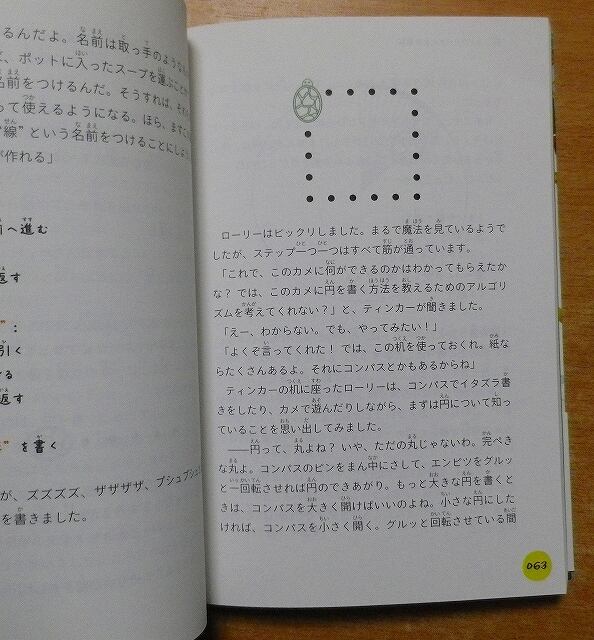 るんだよ。名前は取っ手のような
、ポットに入ったスープを運ぶこと
名前をつけるんだ。そうすれば、
って使えるようになる。ほら、まず
“線”という名前をつけることにし
が作れる」
へ進む
返す
”：
引く
る
返す
” を書く
が、ズズズズ、ザザザザ、プシュプシュ
を書きました。
ローリーはビックリしました。まるで魔法を見ているようで
したが、ステップ一つ一つはすべて筋が通っています。
「これで、このカメに何ができるのかはわかってもらえたか
な？ では、このカメに円を書く方法を教えるためのアルゴリ
ズムを考えてくれない？」と、ティンカーが聞きました。
「えー、わからない。でも、やってみたい！」
「よくぞ言ってくれた！ では、この机を使っておくれ。紙な
らたくさんあるよ。それにコンパスとかもあるからね」
ティンカーの机に座ったローリーは、コンパスでイタズラ書
きをしたり、カメで遊んだりしながら、まずは円について知っ
ていることを思い出してみました。
――円って、丸よね？ いや、ただの丸じゃないわ。完ぺき
な丸よ。コンパスのピンをまん中にさして、エンピツをグルッ
と一回転させれば円のできあがり。もっと大きな円を書くと
きは、コンパスを大きく開けばいいのよね。小さな円にした
ければ、コンパスを小さく開く。グルッと回転させている間
063